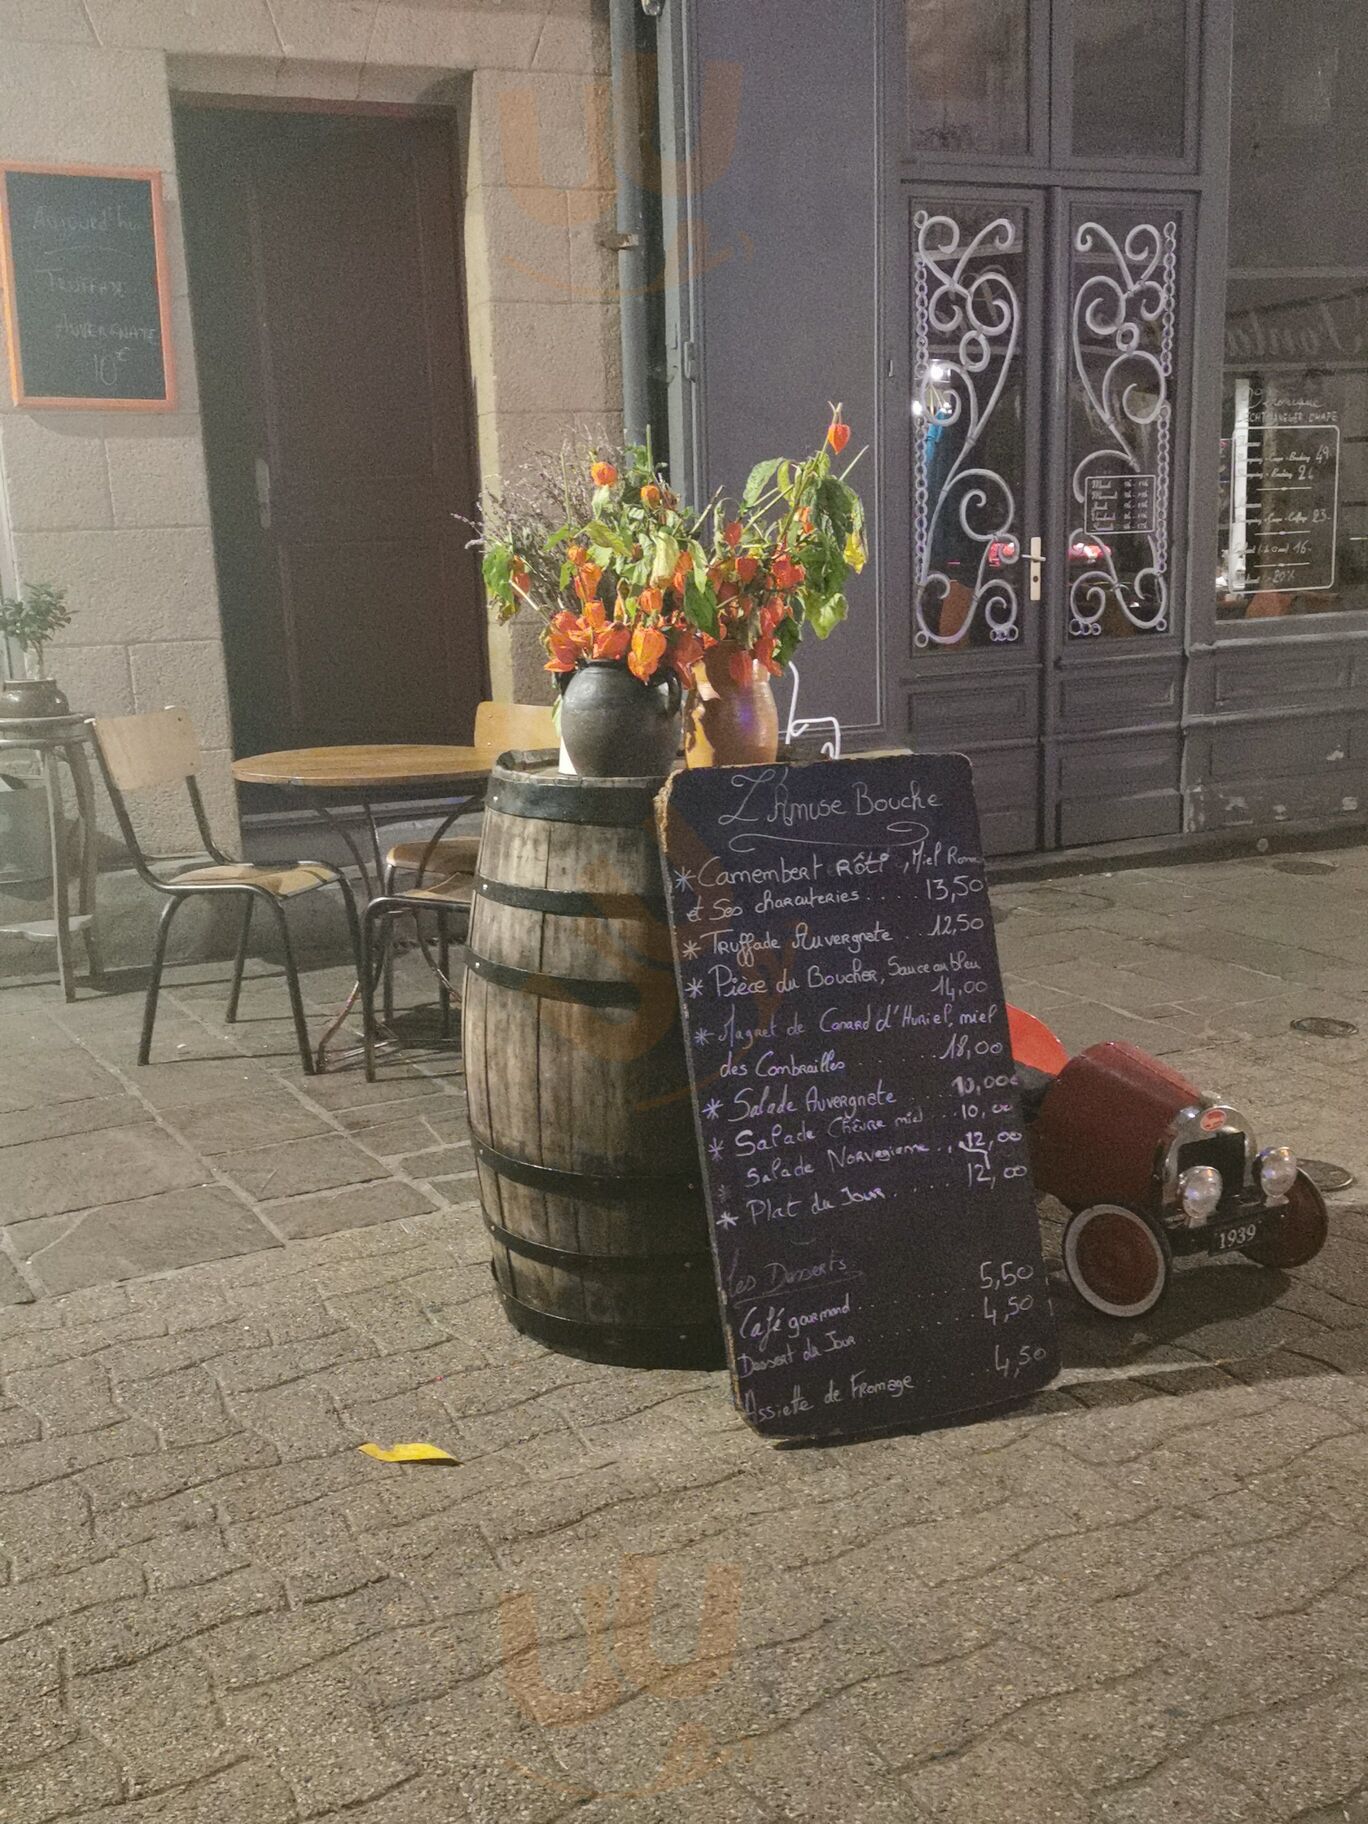 Aujourd'hui
TRUFFADE
AUVERGNATE
10€
L'Amuse Bouche
* Camembert RÔTI, Miel Roma
et Ses charcuteries .... 13,50
* Truffade Auvergnate .. 12,50
* Pièce du Boucher, Sauce au bleu
14,00
* Magret de Canard d'Huriel, miel
des Combrailles ...... 18,00
* Salade Auvergnate ... 10,00€
* Salade Chèvre miel ... 10,00
Salade Norvegienne .. 12,00
* Plat du Jour ..... 12,00
Les Desserts:
5,50
Café gourmand ....... 4,50
Dessert du Jour .......
Assiette de Fromage .... 4,50
1939
49
24
23
16
20%